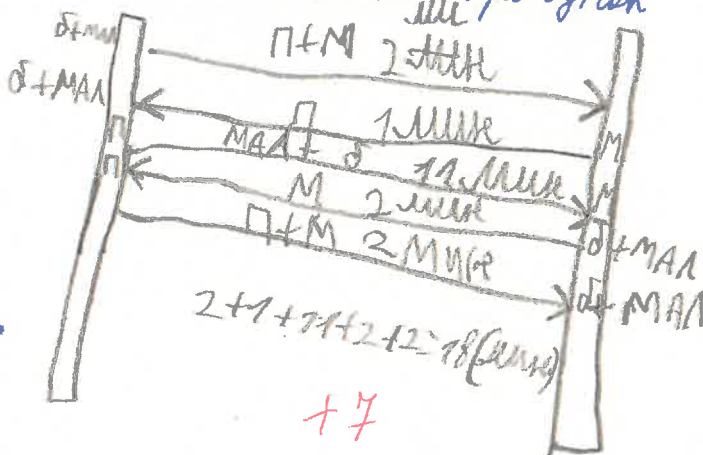 мин
б+мал
П+М 2 мин
б+МАЛ
П 1 мин
П
МАЛ+б 11 мин
М
П
М 2 мин
М
б+МАЛ
П+М 2 мин
б+МАЛ
2+1+11+2+2=18(мин)
+7